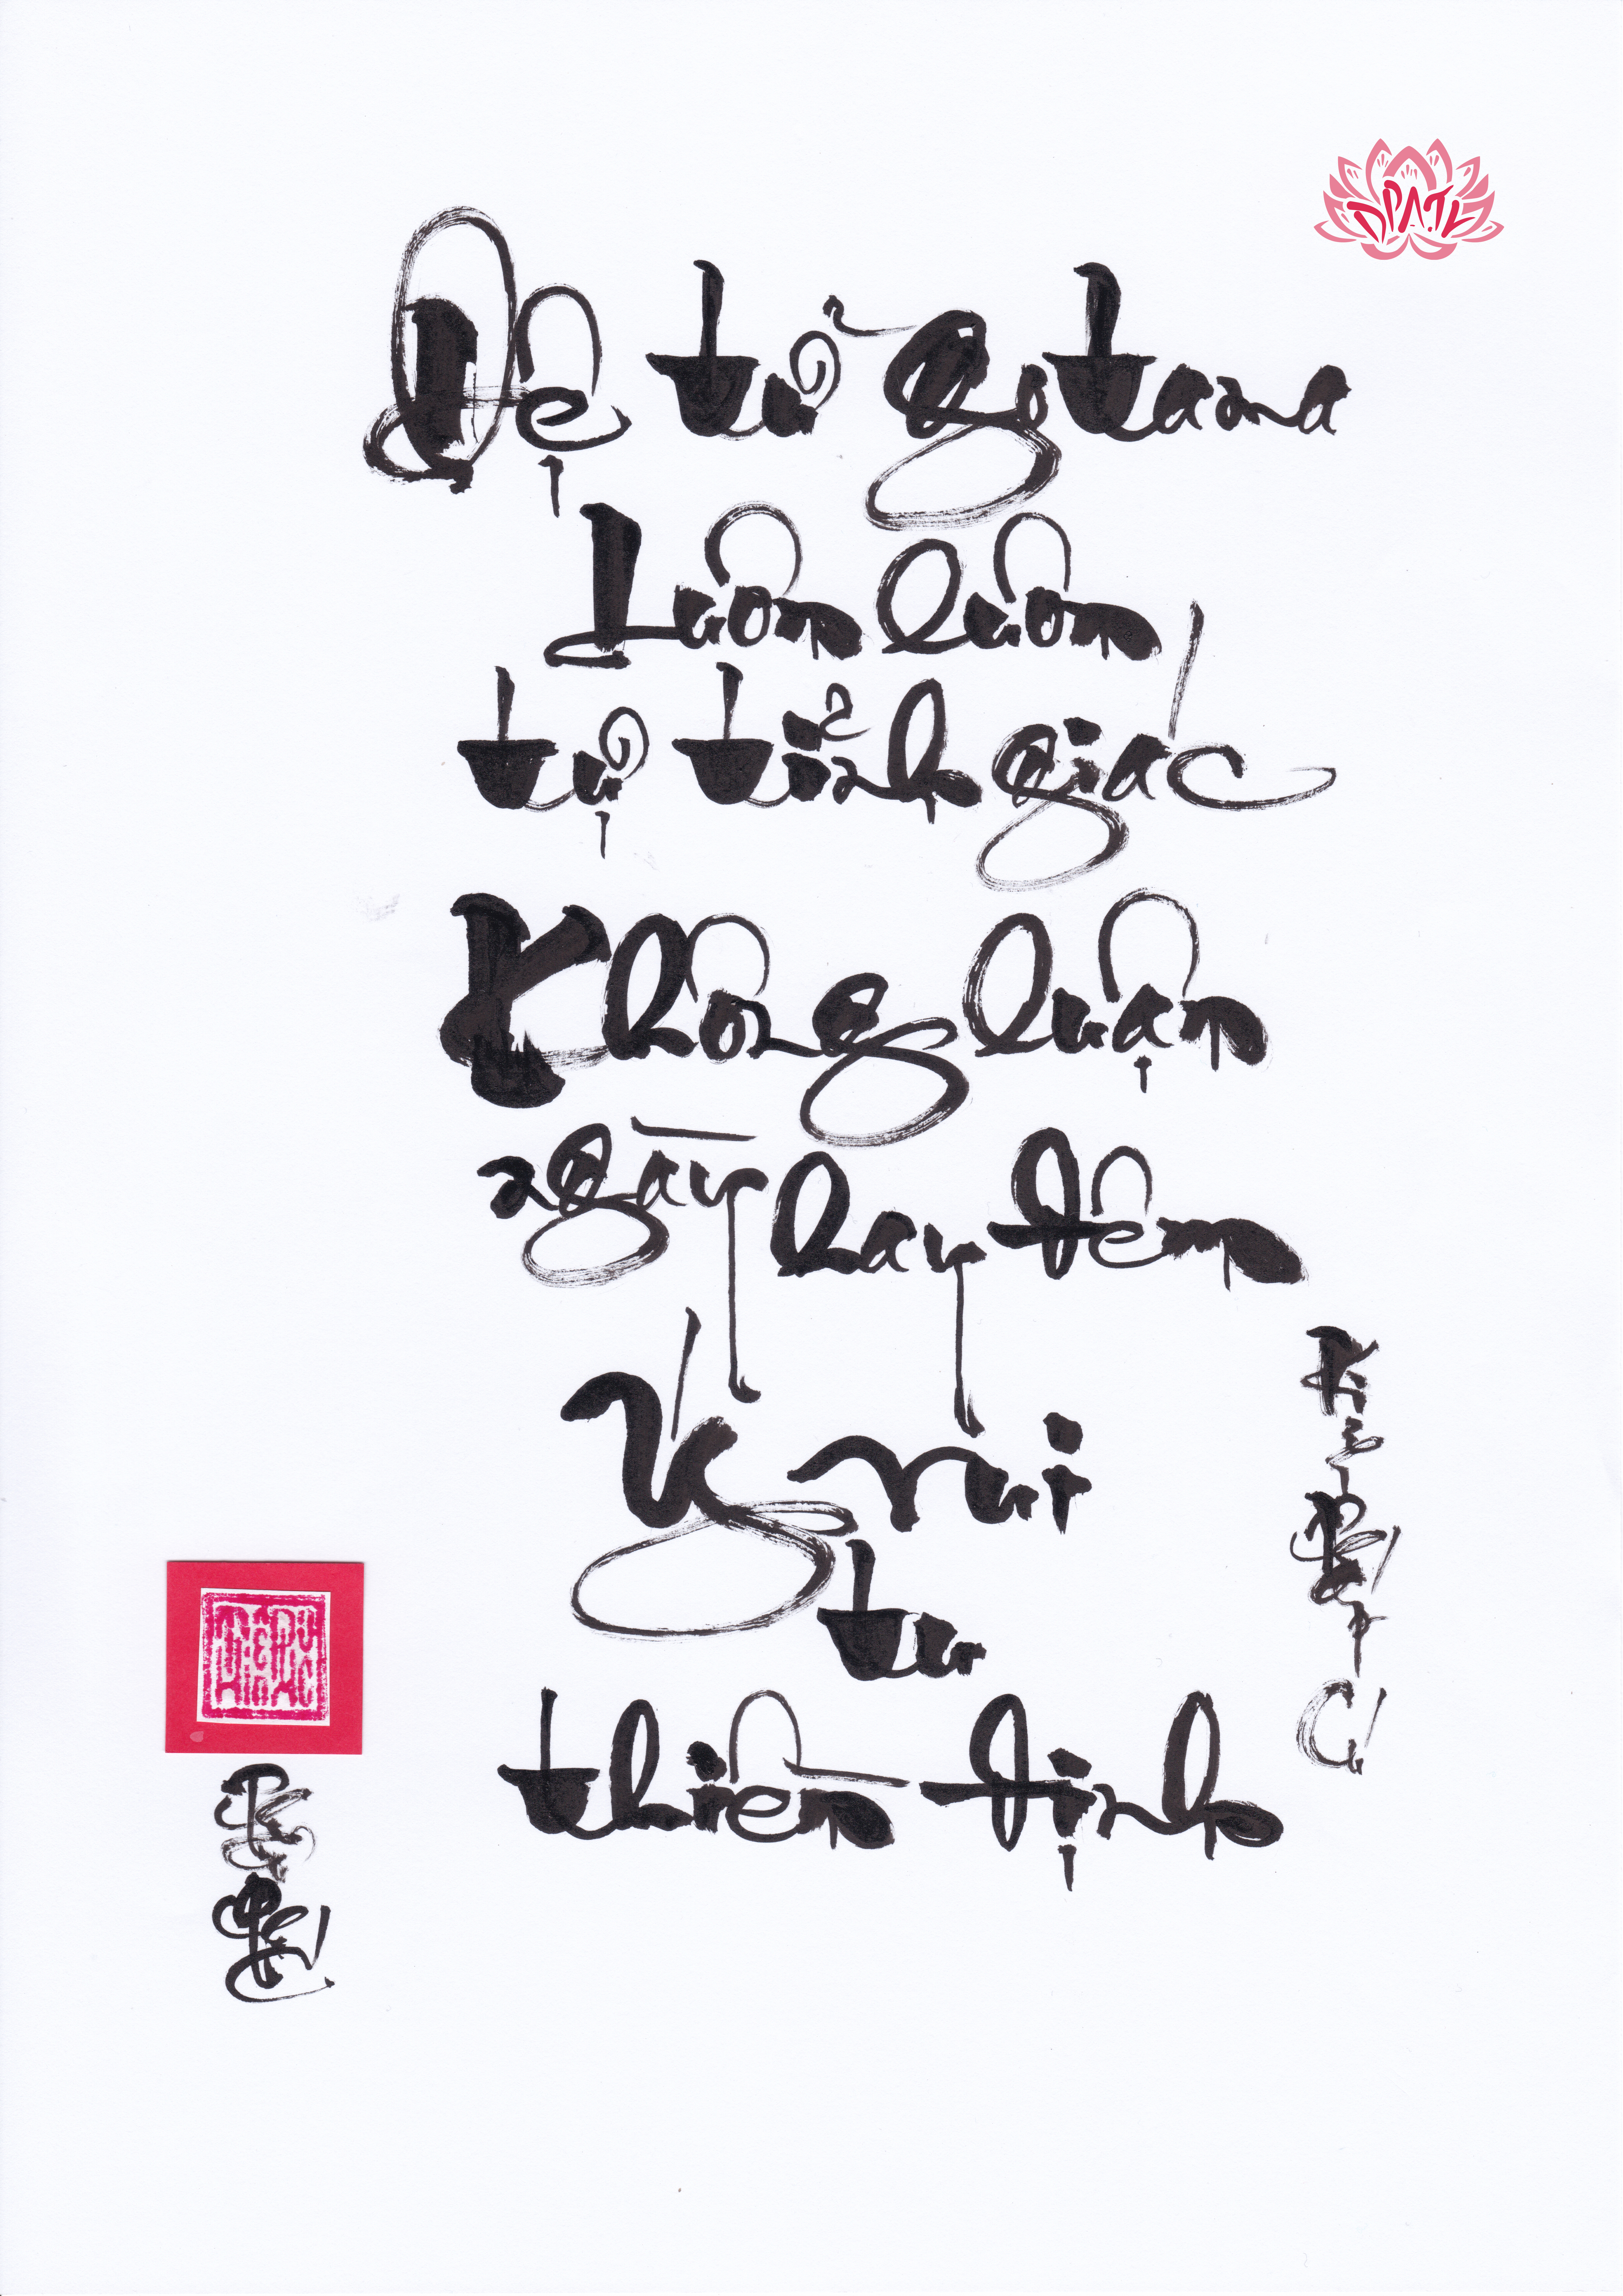 DPATK
Đệ tử Gotama
Luôn luôn
tự tỉnh giác
Không luận
ngày hay đêm
Ý vui
tu
thiền định
Kinh Pháp Cú